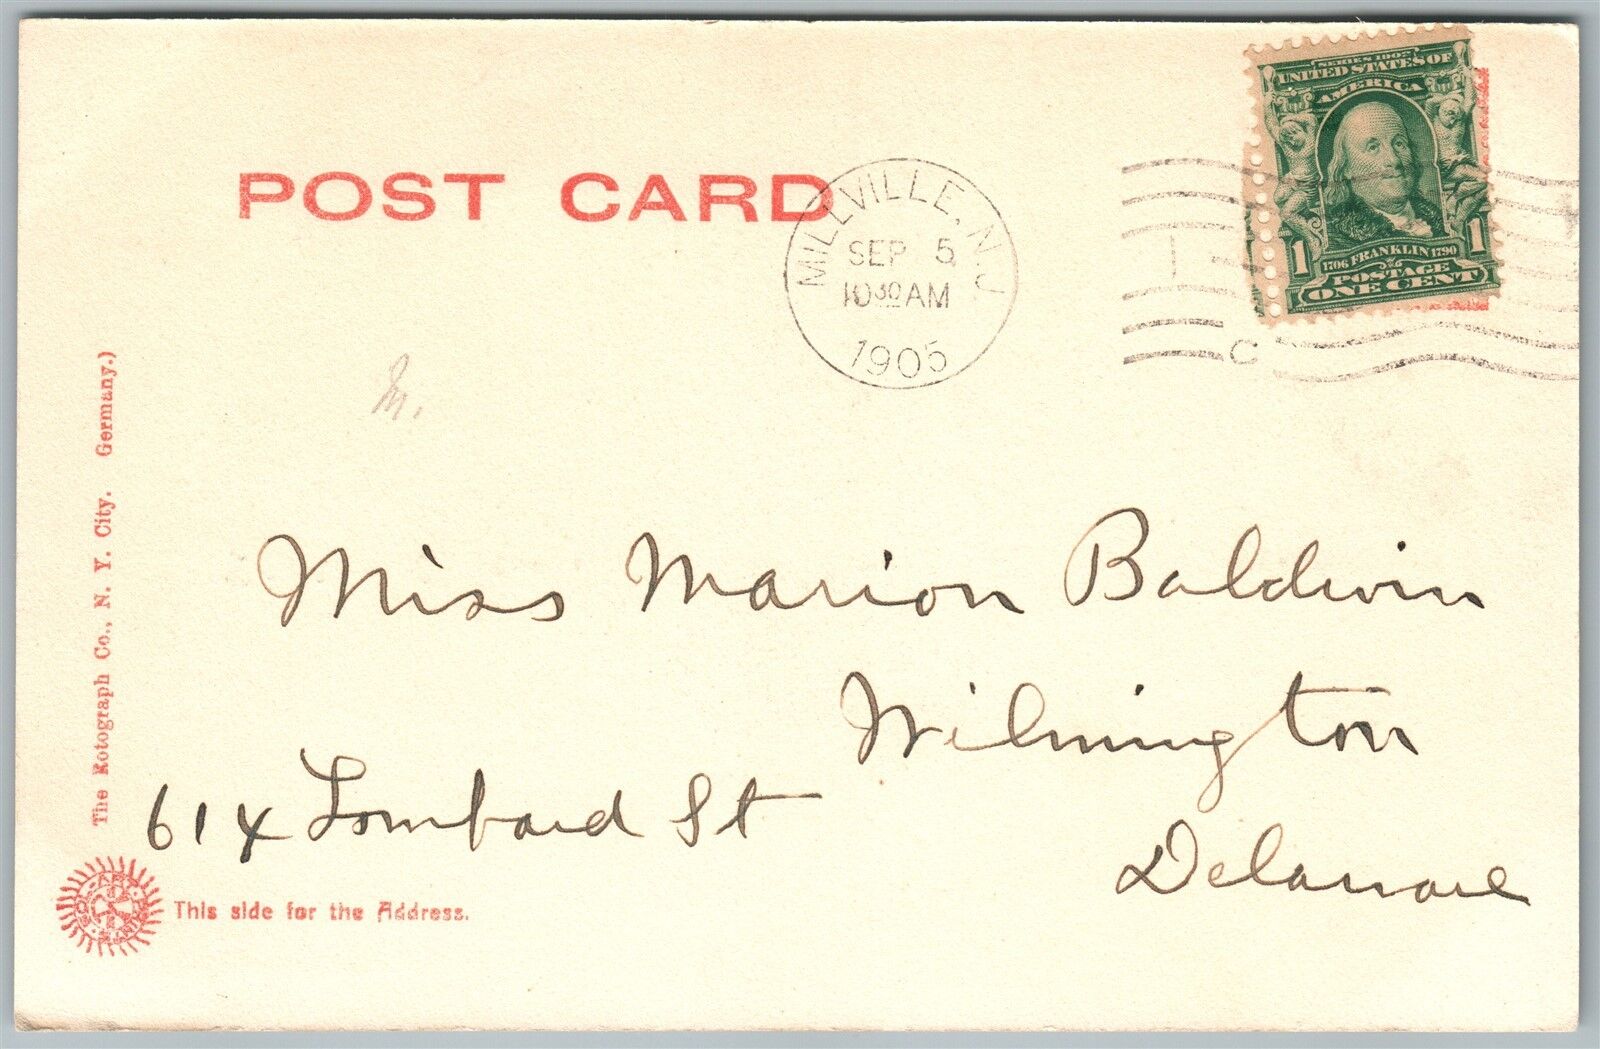 SERIES 1902
UNITED STATES OF
AMERICA
1706 FRANKLIN 1790
1 1
POSTAGE
ONE CENT
POST CARD
MILLVILLE, N.J.
SEP 5
10 30 AM
1905
C
M.
Miss Marion Baldwin
Wilmington
614 Lombard St
Delaware
The Rotograph Co., N. Y. City. Germany.)
SOL-ART PRINTS
This side for the Address.